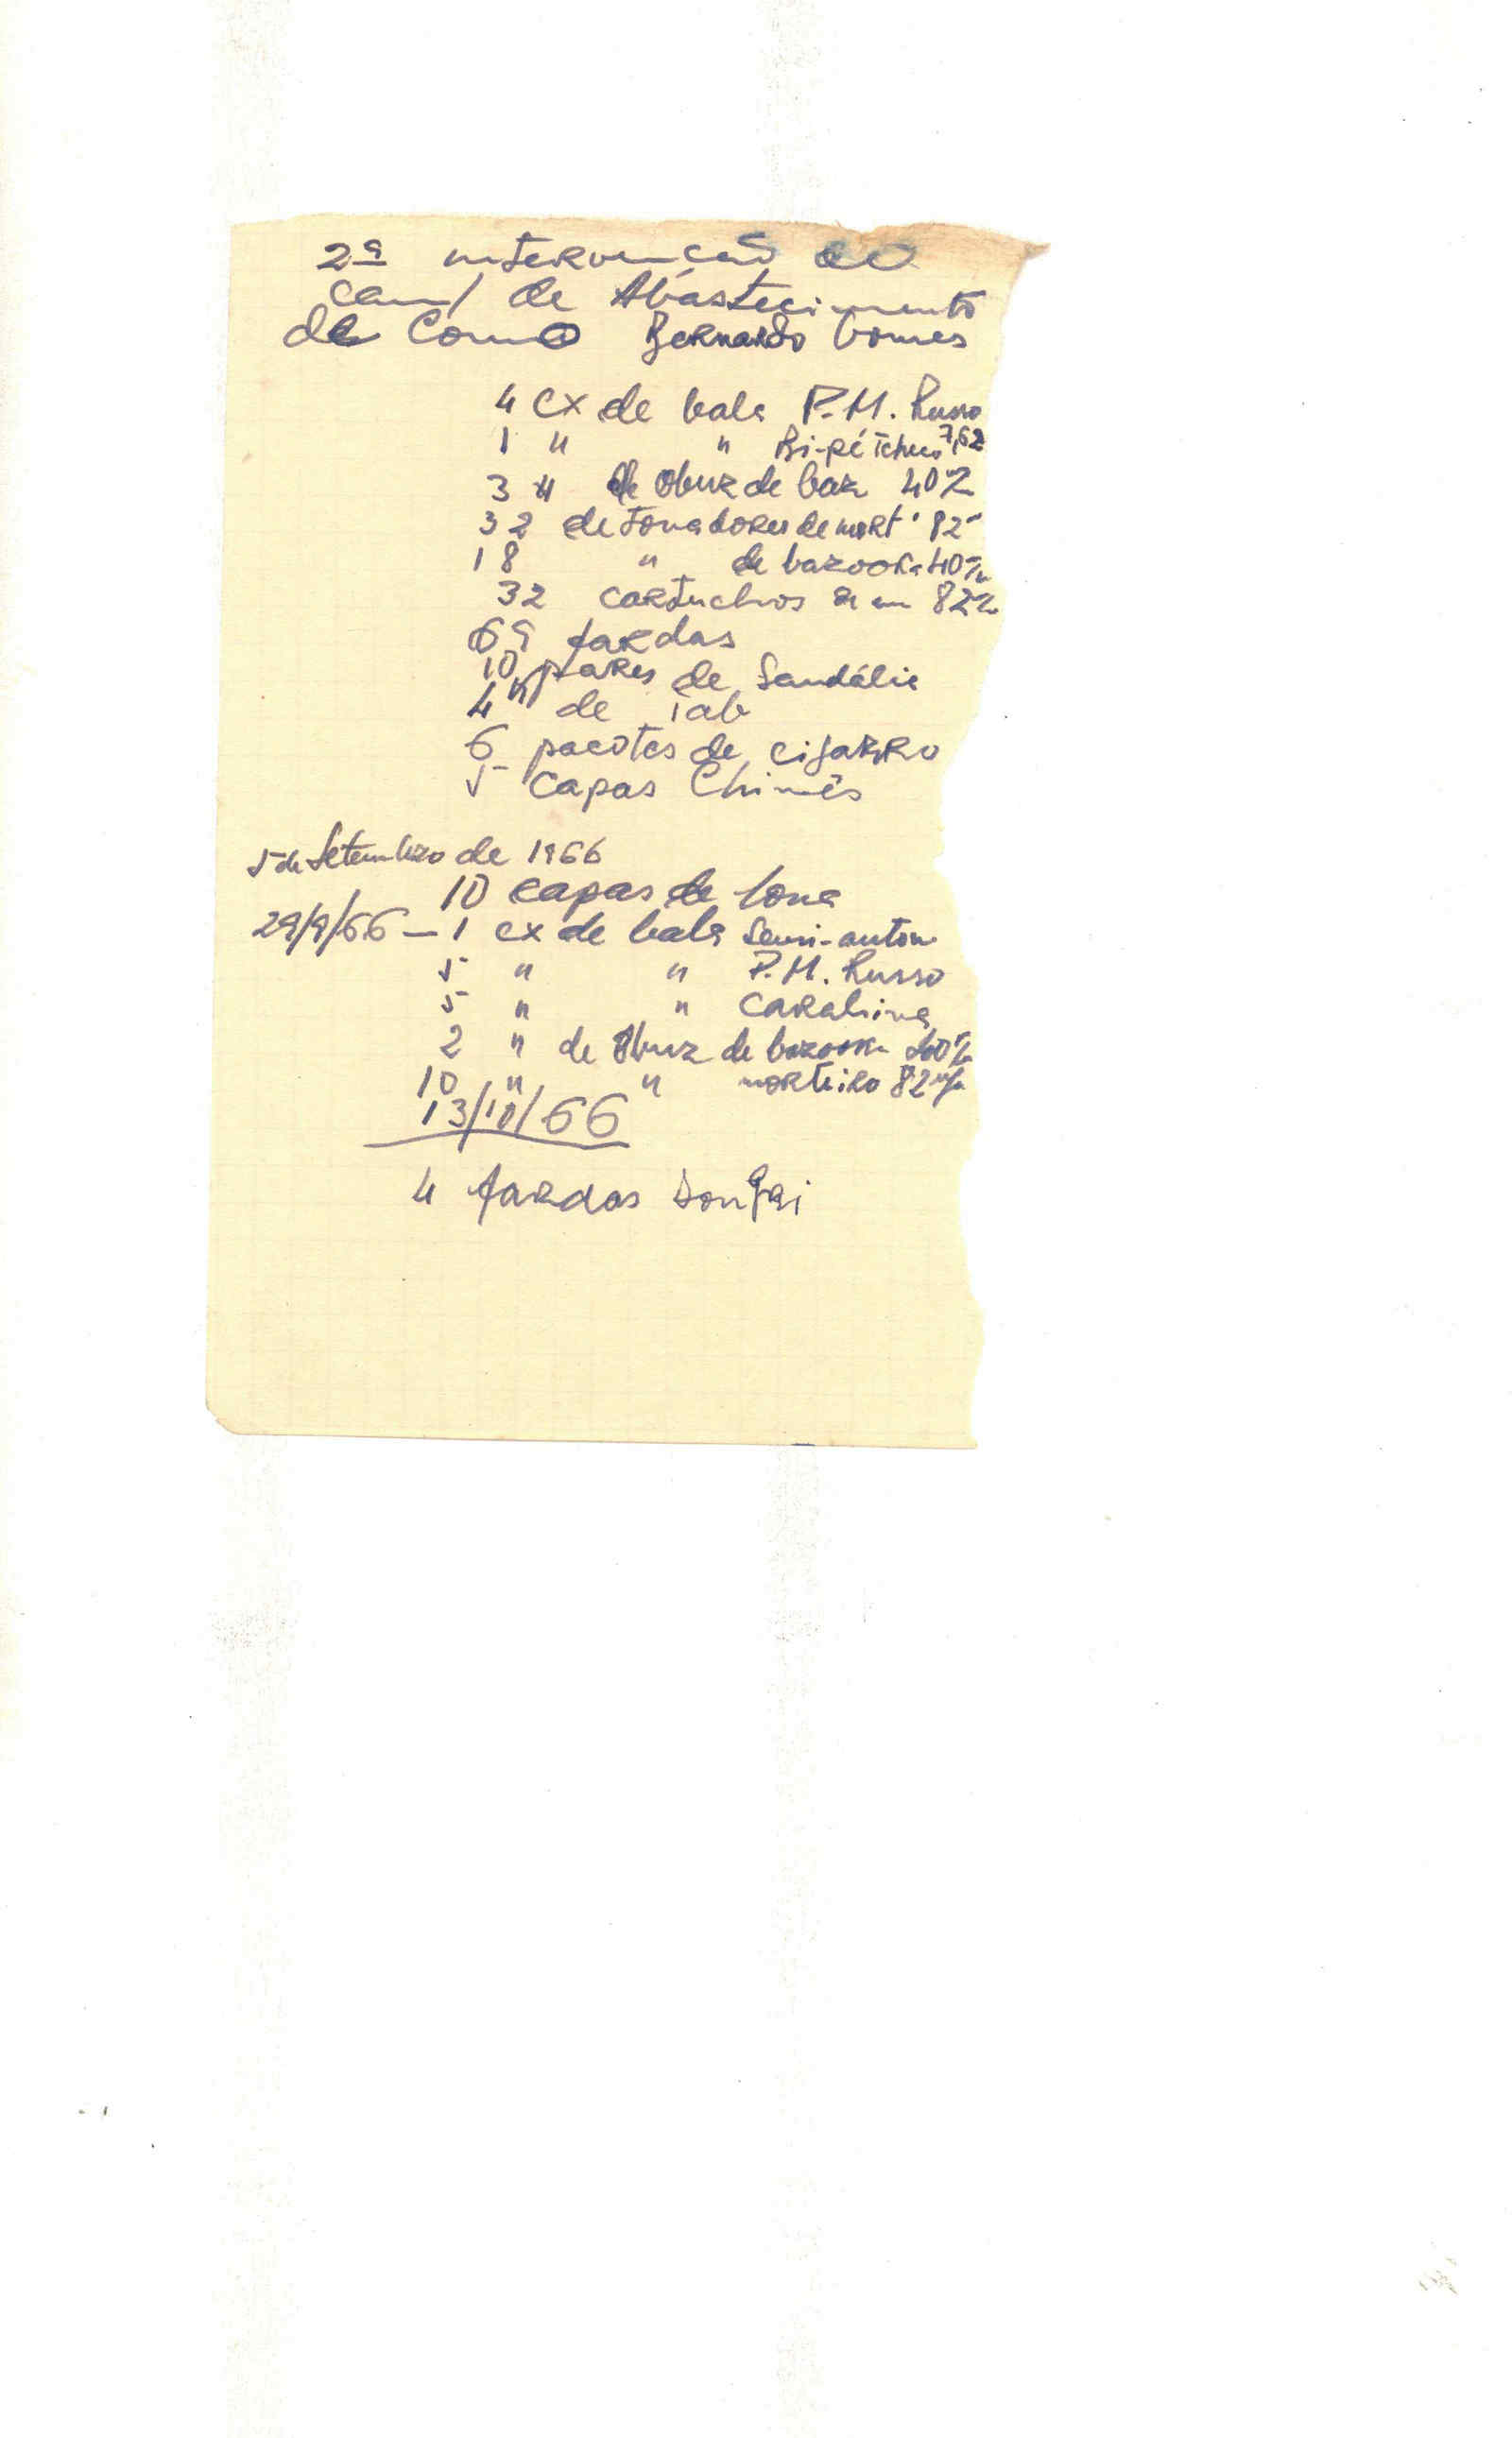 2ª intervenção ao
cam/ de Abastecimento
de Como Bernardo Gomes
4 cx de bala P.M. Russo
1 " " Bi-pé Tcheco 7,62
3 " de obuz de baz 40
32 detonadores de mort. 82
18 " de bazooka 40
32 cartuchos 82
69 fardas
10 pares de Sandália
4 K de Tab
6 pacotes de cigarro
5 capas Chinês
5 de Setembro de 1966
10 capas de lona
29/9/66 - 1 cx de bala Semi-autom
5 " " P.M. Russo
5 " " Carabina
2 " de Obuz de bazooka
10 " " morteiro 82 m/m
13/10/66
4 fardas